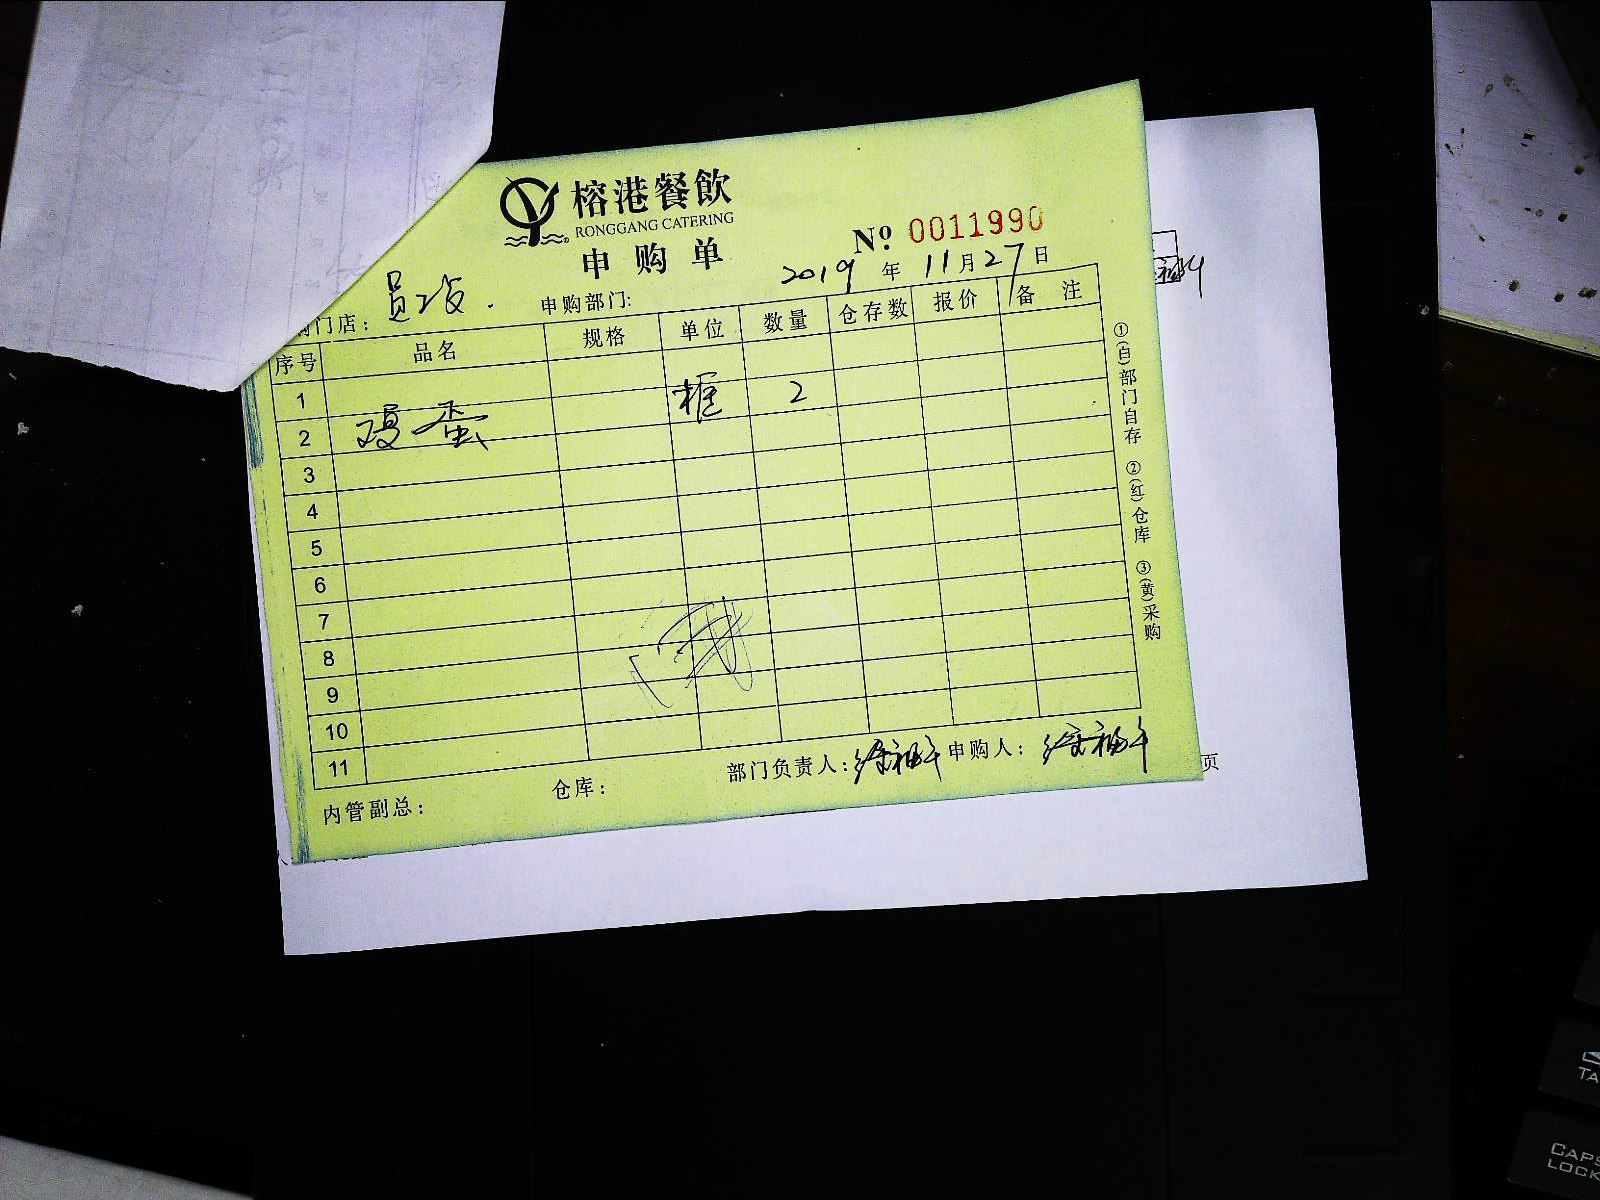 榕港餐飲
RONGGANG CATERING
申购单
№ 0011990
2019年11月27日
门店： 申购部门:
序号 品名 规格 单位 数量 仓存数 报价 备注
1
2 鸡蛋 框 2
3
4
5
6
7
8
9
10
11
内管副总： 仓库： 部门负责人: 徐福平 申购人： 徐福平
①(白)部门自存 ②(红)仓库 ③(黄)采购
页
TA
CAPS
LOCK